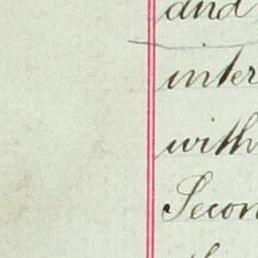 and
inter
with
Secon